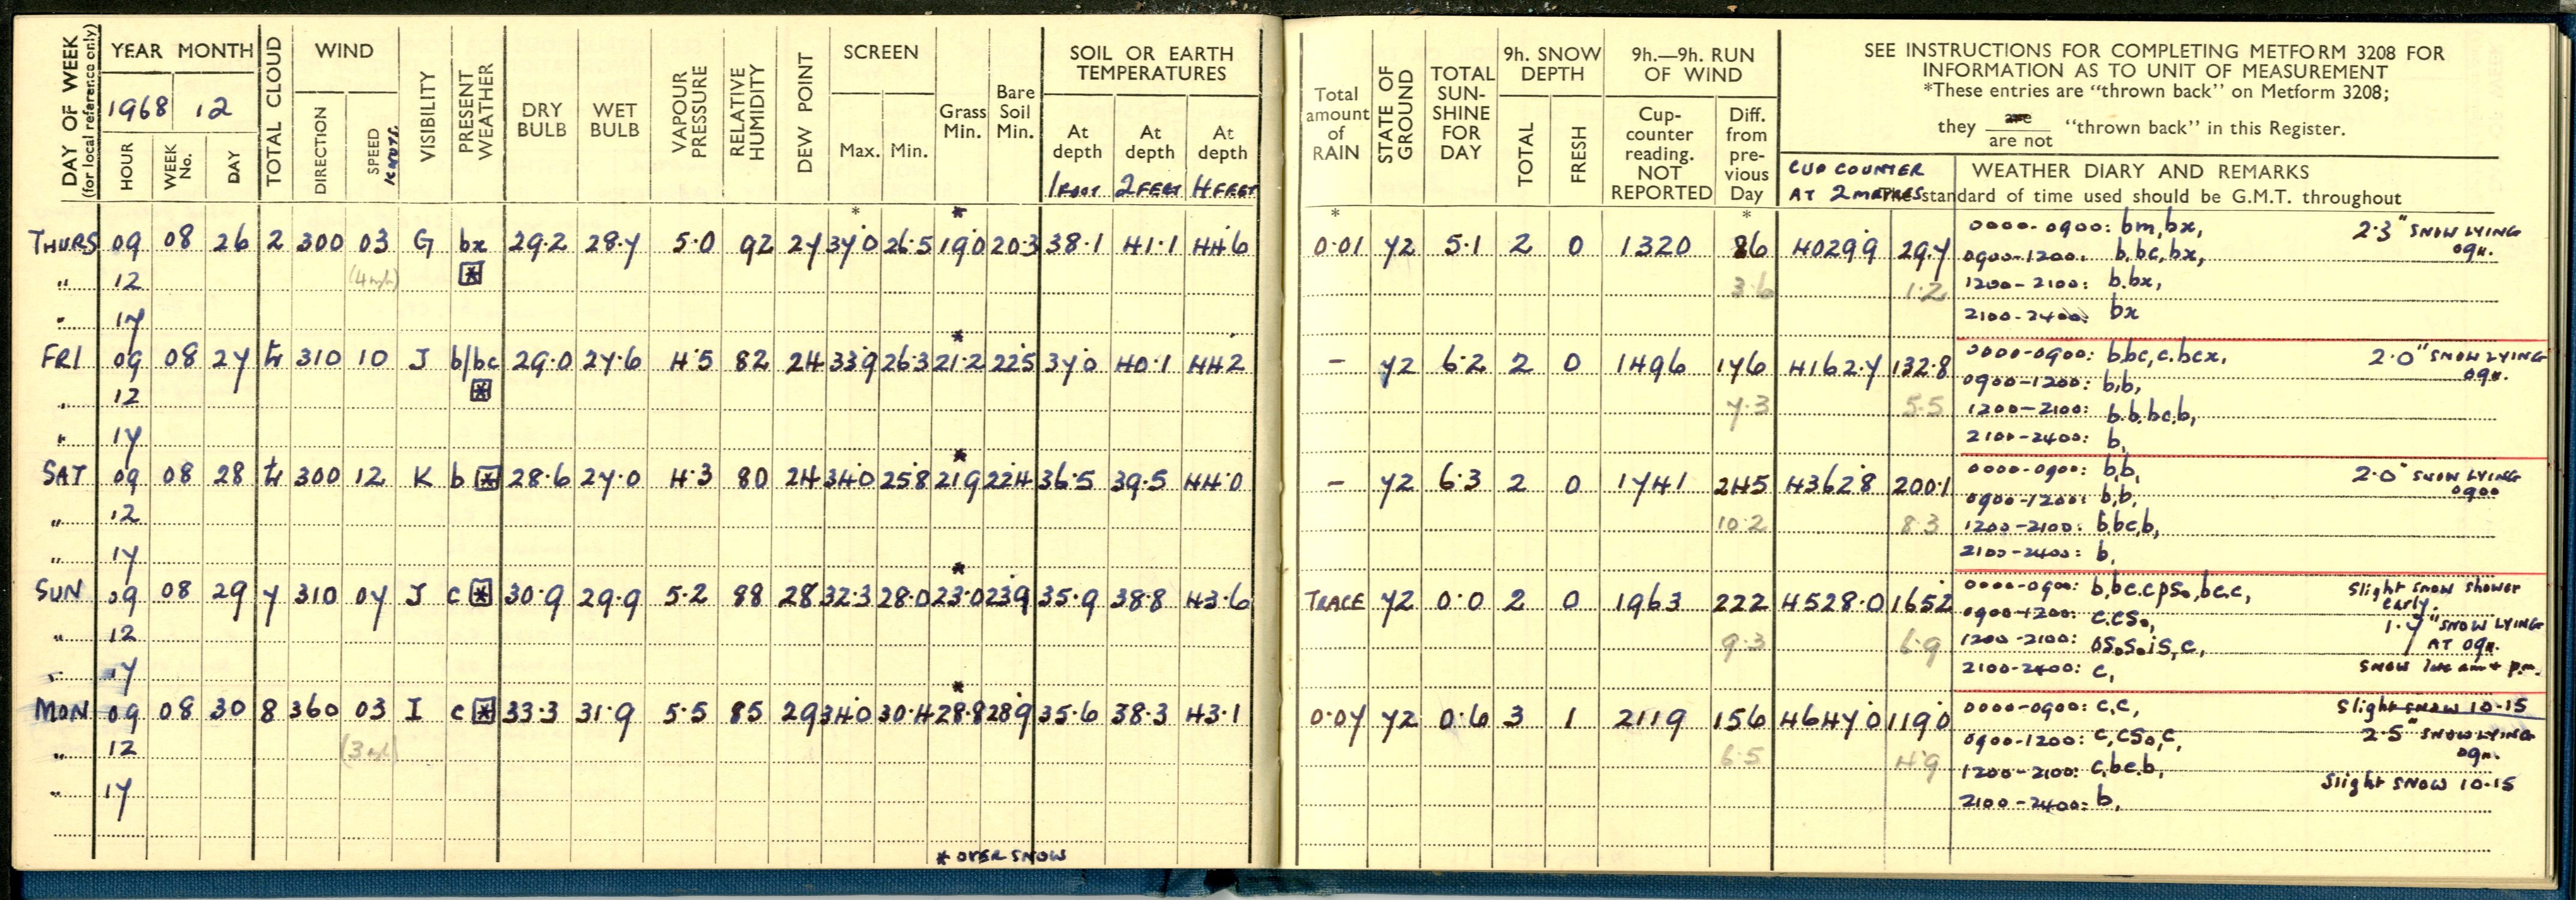 DAY OF WEEK
(for local reference only)
YEAR MONTH
1968 12
HOUR
WEEK No.
DAY
TOTAL CLOUD
WIND
DIRECTION
SPEED KNOTS
VISIBILITY
PRESENT WEATHER
DRY BULB
WET BULB
VAPOUR PRESSURE
RELATIVE HUMIDITY
DEW POINT
SCREEN
Max. Min.
Grass Min.
Bare Soil Min.
SOIL OR EARTH TEMPERATURES
At depth 1 FOOT
At depth 2 FEET
At depth 4 FEET
Total amount of RAIN
STATE OF GROUND
TOTAL SUN-SHINE FOR DAY
9h. SNOW DEPTH
TOTAL
FRESH
9h.—9h. RUN OF WIND
Cup-counter reading. NOT REPORTED
Diff. from pre-vious Day
SEE INSTRUCTIONS FOR COMPLETING METFORM 3208 FOR
INFORMATION AS TO UNIT OF MEASUREMENT
*These entries are "thrown back" on Metform 3208;
they are / are not "thrown back" in this Register.
CUP COUNTER
AT 2 METRES
WEATHER DIARY AND REMARKS
The standard of time used should be G.M.T. throughout
* * * *
THURS 09 08 26 2 300 03 G bx 29.2 28.7 5.0 92 27 37.0 26.5 19.0 20.3 38.1 41.1 44.6 0.01 72 5.1 2 0 1320 86 4029.9 29.7
" 12 (4 mph) 3.6 1.2
" 17
0000-0900: bm,bx, 2.3" SNOW LYING 09h.
0900-1200: b,bc,bx,
1200-2100: b.bx,
2100-2400: bx
*
FRI 09 08 27 tr 310 10 J b/bc 29.0 27.6 4.5 82 24 33.9 26.3 21.2 22.5 37.0 40.1 44.2 - 72 6.2 2 0 1496 176 4162.7 132.8
" 12 7.3 5.5
" 17
0000-0900: b,bc,c.bcx, 2.0" SNOW LYING 09h.
0900-1200: b,b,
1200-2100: b.b.bc,b,
2100-2400: b,
*
SAT 09 08 28 tr 300 12 K b 28.6 27.0 4.3 80 24 34.0 25.8 21.9 22.4 36.5 39.5 44.0 - 72 6.3 2 0 1741 245 4362.8 200.1
" 12 10.2 8.3
" 17
0000-0900: b,b, 2.0" SNOW LYING 0900
0900-1200: b,b,
1200-2100: b,bc,b,
2100-2400: b,
*
SUN 09 08 29 7 310 07 J c 30.9 29.9 5.2 88 28 32.3 28.0 23.0 23.9 35.9 38.8 43.6 TRACE 72 0.0 2 0 1963 222 4528.0 165.2
" 12 9.3 6.9
" 17
0000-0900: b,bc.c.pso,bc.c, Slight snow shower early.
0900-1200: c.cso, 1.7" SNOW LYING AT 09h.
1200-2100: oso.so.is,c,
2100-2400: c, SNOW late am + p.m.
*
MON 09 08 30 8 360 03 I c 33.3 31.9 5.5 85 29 34.0 30.4 28.8 28.9 35.6 38.3 43.1 0.07 72 0.6 3 1 2119 156 4647.0 119.0
" 12 (3 mph) 6.5 4.9
" 17
0000-0900: c,c, Slight snow 10-15
0900-1200: c,cso,c, 2.5" SNOW LYING 09h.
1200-2100: c,bc.b,
Slight SNOW 10-15
2100-2400: b,
* OVER SNOW